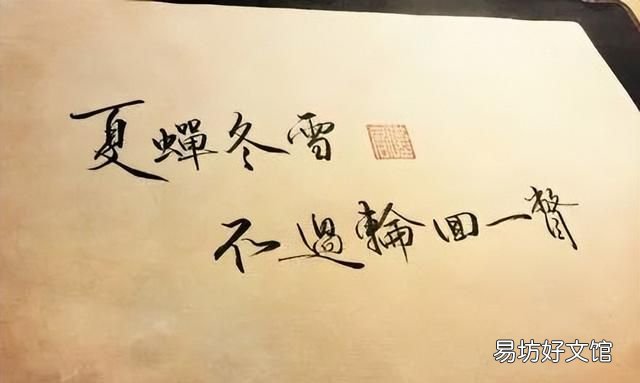 夏蟬冬雪
不過輪回一瞥
易坊好文馆